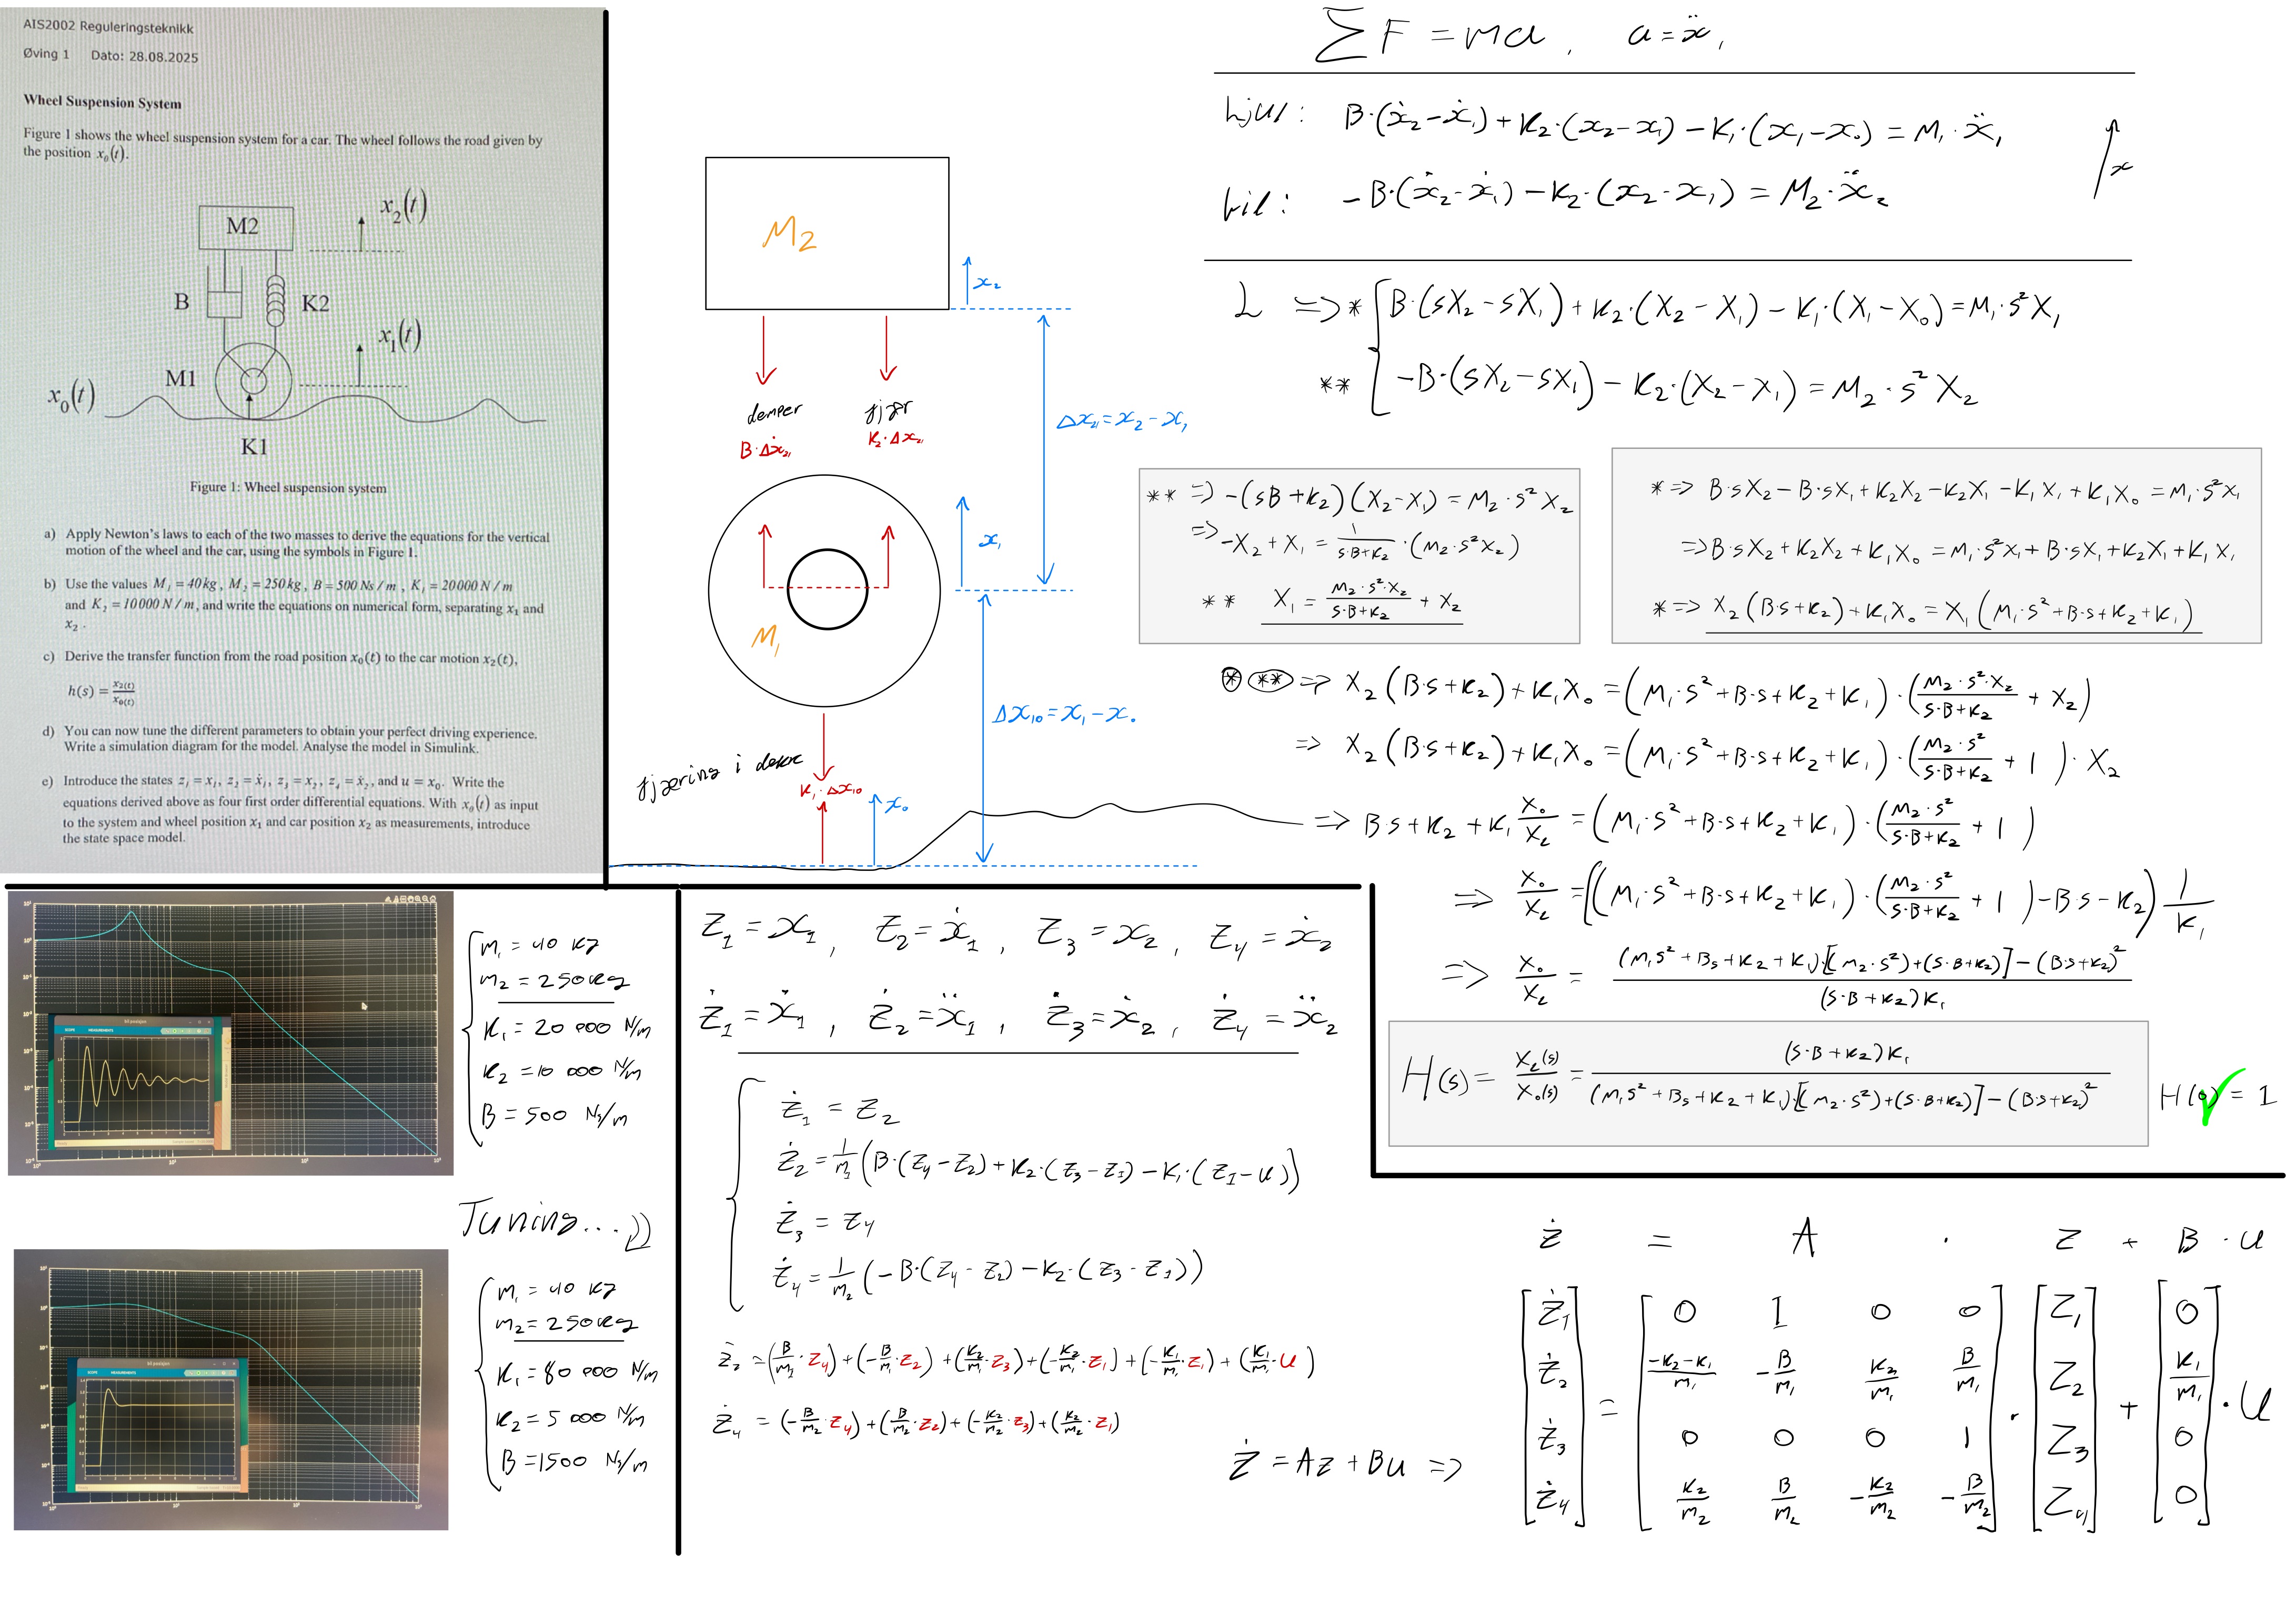 AIS2002 Reguleringsteknikk
Øving 1 Dato: 28.08.2025
Wheel Suspension System
Figure 1 shows the wheel suspension system for a car. The wheel follows the road given by
the position x₀(t).
x₂(t)
M2
B
K2
x₁(t)
M1
x₀(t)
K1
Figure 1: Wheel suspension system
a) Apply Newton's laws to each of the two masses to derive the equations for the vertical
motion of the wheel and the car, using the symbols in Figure 1.
b) Use the values M₁ = 40 kg, M₂ = 250 kg, B = 500 Ns / m, K₁ = 20000 N / m
and K₂ = 10000 N / m, and write the equations on numerical form, separating x₁ and
x₂.
c) Derive the transfer function from the road position x₀(t) to the car motion x₂(t),
h(s) = x₂(t) / x₀(t)
d) You can now tune the different parameters to obtain your perfect driving experience.
Write a simulation diagram for the model. Analyse the model in Simulink.
e) Introduce the states z₁ = x₁, z₂ = ẋ₁, z₃ = x₂, z₄ = ẋ₂, and u = x₀. Write the
equations derived above as four first order differential equations. With x₀(t) as input
to the system and wheel position x₁ and car position x₂ as measurements, introduce
the state space model.
M₂
x₂
demper
fjær
B·Δẋ₂₁
K₂·Δx₂₁
Δx₂₁ = x₂ - x₁
x₁
M₁
Δx₁₀ = x₁ - x₀
fjæring i
K₁·Δx₁₀
x₀
ΣF = ma, a = ẍ,
hjul: B·(ẋ₂-ẋ₁) + K₂·(x₂-x₁) - K₁·(x₁-x₀) = M₁·ẍ₁
x
bil: -B·(ẋ₂-ẋ₁) - K₂·(x₂-x₁) = M₂·ẍ₂
L => * B·(sX₂-sX₁) + K₂·(X₂-X₁) - K₁·(X₁-X₀) = M₁·s²X₁
** -B·(sX₂-sX₁) - K₂·(X₂-X₁) = M₂·s²X₂
** => -(sB+K₂)(X₂-X₁) = M₂·s²X₂
=> -X₂ + X₁ = 1/(s·B+K₂) · (M₂·s²X₂)
** X₁ = (M₂·s²·X₂)/(s·B+K₂) + X₂
* => B·sX₂ - B·sX₁ + K₂X₂ - K₂X₁ - K₁X₁ + K₁X₀ = M₁·s²X₁
=> B·sX₂ + K₂X₂ + K₁X₀ = M₁·s²X₁ + B·sX₁ + K₂X₁ + K₁X₁
* => X₂(B·s+K₂) + K₁X₀ = X₁(M₁·s²+B·s+K₂+K₁)
* ** => X₂(B·s+K₂) + K₁X₀ = (M₁·s²+B·s+K₂+K₁)·((M₂·s²·X₂)/(s·B+K₂) + X₂)
=> X₂(B·s+K₂) + K₁X₀ = (M₁·s²+B·s+K₂+K₁)·((M₂·s²)/(s·B+K₂) + 1)·X₂
=> B·s+K₂+K₁ X₀/X₂ = (M₁·s²+B·s+K₂+K₁)·((M₂·s²)/(s·B+K₂) + 1)
=> X₀/X₂ = ((M₁·s²+B·s+K₂+K₁)·((M₂·s²)/(s·B+K₂) + 1) - B·s - K₂) 1/K₁
=> X₀/X₂ = ((M₁s²+Bs+K₂+K₁)·[(M₂·s²)+(s·B+K₂)] - (B·s+K₂)²) / ((s·B+K₂)K₁)
H(s) = X₂(s)/X₀(s) = ((s·B+K₂)K₁) / ((M₁s²+Bs+K₂+K₁)·[(M₂·s²)+(s·B+K₂)] - (B·s+K₂)²)
H(0) = 1
m₁ = 40 kg
m₂ = 250kg
K₁ = 20 000 N/m
K₂ = 10 000 N/m
B = 500 Ns/m
Tuning...
m₁ = 40 kg
m₂ = 250kg
K₁ = 80 000 N/m
K₂ = 5 000 N/m
B = 1500 Ns/m
SCOPE MEASUREMENTS
SCOPE MEASUREMENTS
z₁ = x₁, z₂ = ẋ₁, z₃ = x₂, z₄ = ẋ₂
ż₁ = ẋ₁, ż₂ = ẍ₁, ż₃ = ẋ₂, ż₄ = ẍ₂
ż₁ = z₂
ż₂ = 1/m₁ (B·(z₄-z₂) + K₂·(z₃-z₁) - K₁·(z₁-u))
ż₃ = z₄
ż₄ = 1/m₂ (-B·(z₄-z₂) - K₂·(z₃-z₁))
ż₂ = (B/m₁·z₄) + (-B/m₁·z₂) + (K₂/m₁·z₃) + (-K₂/m₁·z₁) + (-K₁/m₁·z₁) + (K₁/m₁·u)
ż₄ = (-B/m₂·z₄) + (B/m₂·z₂) + (-K₂/m₂·z₃) + (K₂/m₂·z₁)
ż = Az + Bu =>
ż = A · z + B · u
ż₁ 0 1 0 0 z₁ 0
ż₂ = (-K₂-K₁)/m₁ -B/m₁ K₂/m₁ B/m₁ · z₂ + K₁/m₁ · u
ż₃ 0 0 0 1 z₃ 0
ż₄ K₂/m₂ B/m₂ -K₂/m₂ -B/m₂ z₄ 0